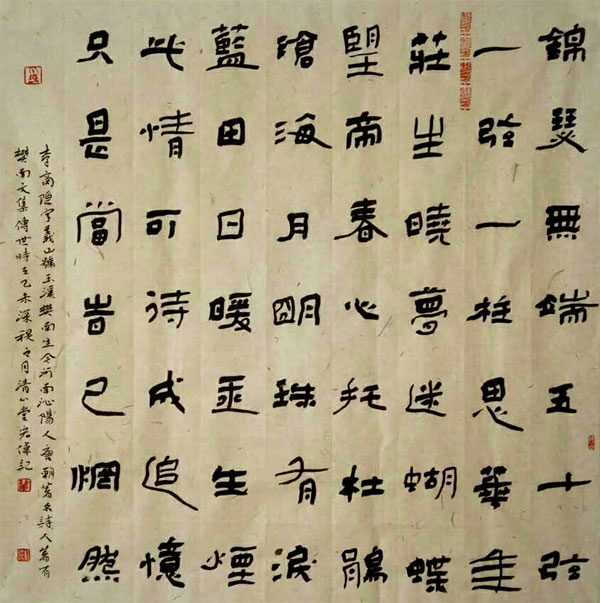 錦瑟無端五十弦
一弦一柱思華年
莊生曉夢迷蝴蝶
望帝春心托杜鵑
滄海月朙珠有淚
藍田日暖玉生煙
此情可待成追憶
只是當旹已惘然
李商隱字義山號玉溪樊南生今河南沁陽人唐朝著名詩人著有
樊南文集傳世時在乙未深之月清堂宏偉記